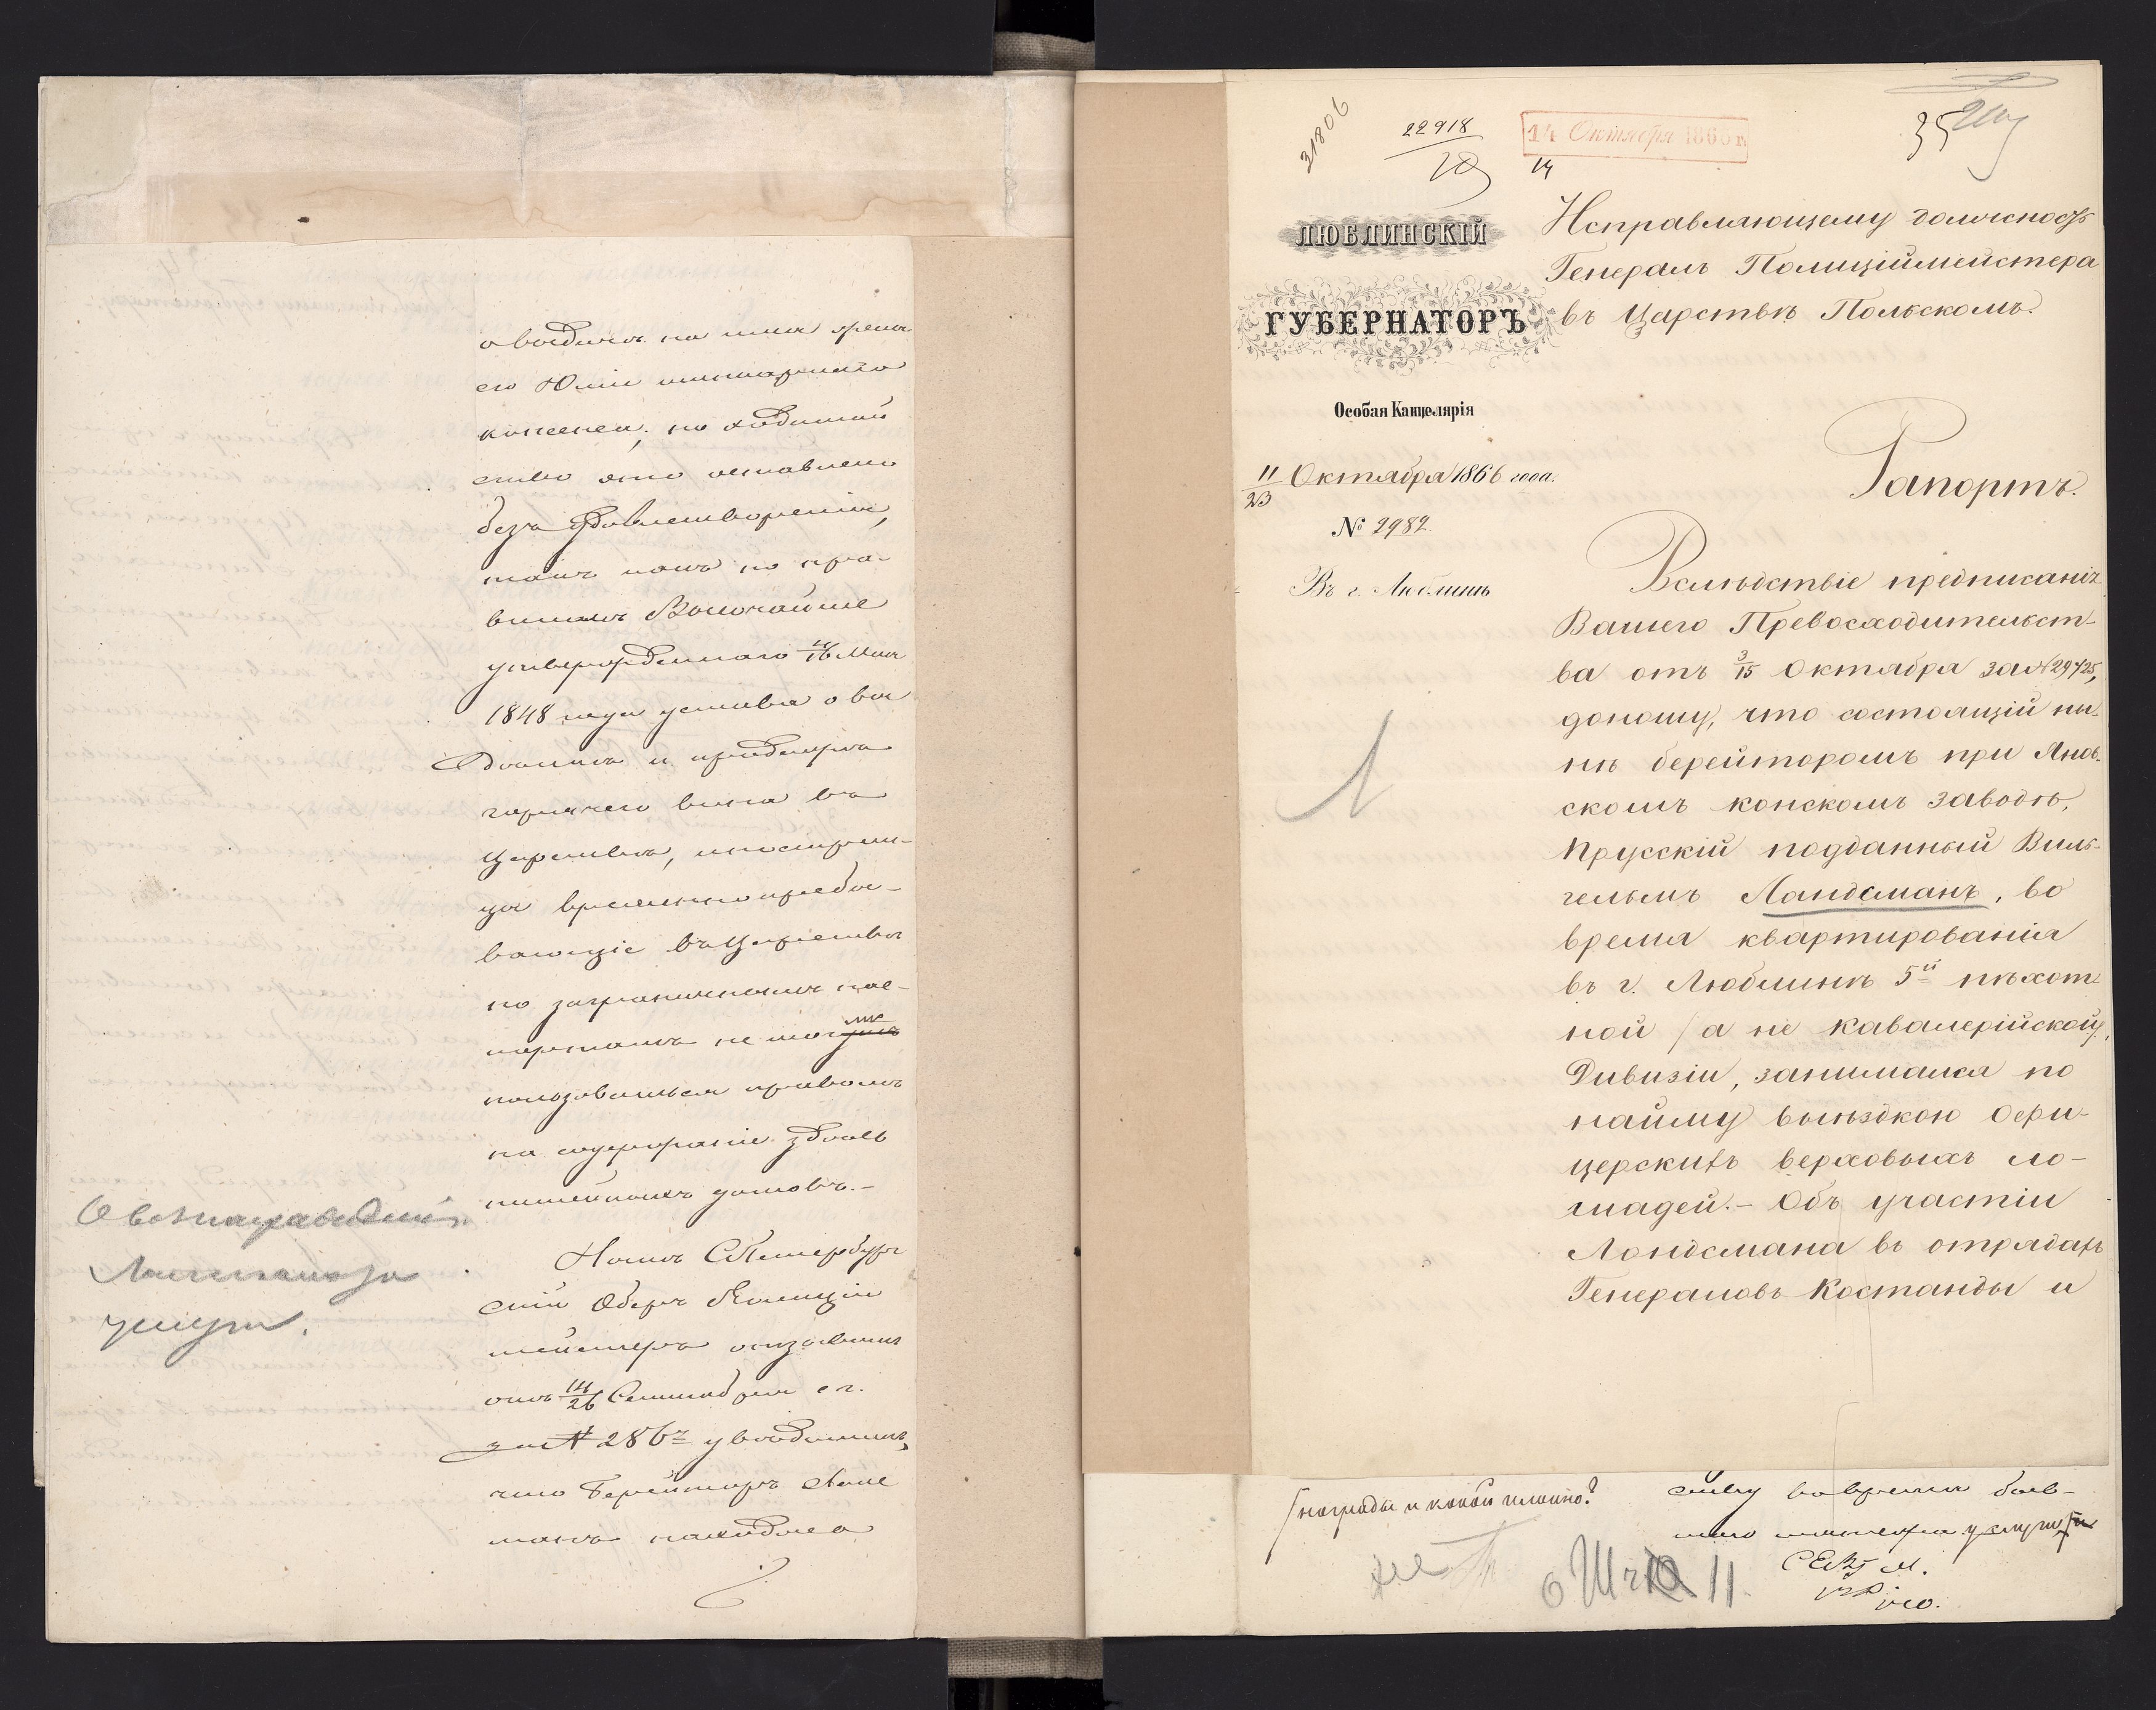 о выдачѣ на имя
его
консенса; но ходатай
ство это оставлено
безъ удовлетворенія,
такъ какъ по пра-
виламъ Высочайше
утвержденнаго 4/16 Мая
1848 года устава о
и
горячаго вина въ
Царствѣ, иностран-
цы временно пребы-
вающіе въ Царствѣ
по заграничнымъ пас-
портамъ не могутъ
пользоваться правомъ
на содержаніе здѣсь
питейныхъ домовъ.-
СПетербург
скій Оберъ Полиціи
мейстеръ
отъ 14/26 Сентября с г.
за № 286 увѣдомилъ,
что Берейторъ Ланс
манъ находился
О вознагражденіи
Лансмана за
услуги.
31806
22918
14 Октября 1866 г.
14
35
ЛЮБЛИНСКІЙ
ГУБЕРНАТОРЪ
Особая Канцелярія
11/23 Октября 1866 года.
№ 2982.
Въ г. Люблинѣ
Исправляющему должность
Генералъ Полиціймейстера
въ Царствѣ Польскомъ.
Рапортъ.
Вслѣдствіе предписанія
Вашего Превосходительст-
ва отъ 3/15 Октября за № 29725,
доношу, что состоящій ны-
нѣ берейторомъ при Янов-
скомъ конскомъ заводѣ,
Прусскій подданный Виль-
гельмъ Ландсманъ, во
время квартированія
въ г. Люблинѣ 5й пѣхот-
ной /а не кавалерійской/,
Дивизіи, занимался по
найму выѣздкою офи-
церскихъ верховыхъ ло-
шадей.- Объ участіи
Ландсмана въ отрядахъ
Генераловъ Костанды и
награды и какой именно?
силу во время быв-
шаго мятежа услуги
11.